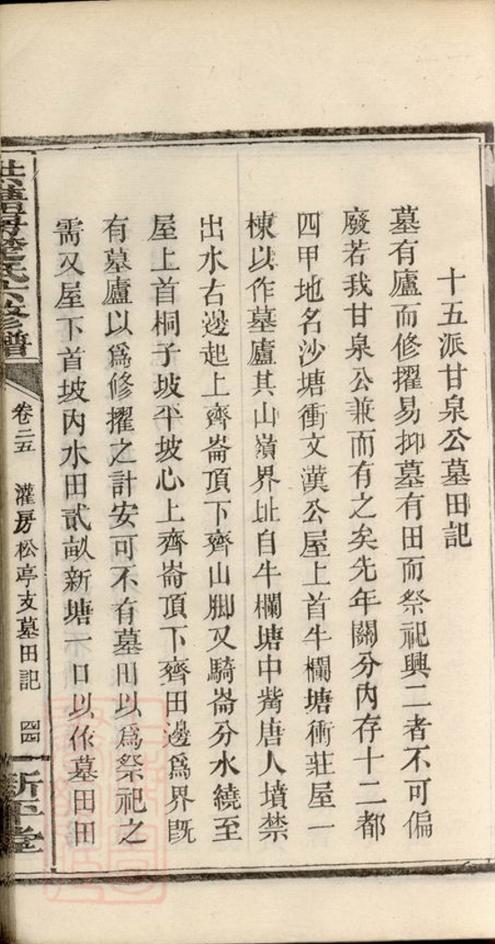 十五派甘泉公墓田記
墓有廬而修擢易抑墓有田而祭祀興二者不可偏
廢若我甘泉公兼而有之矣先年關分內存十二都
四甲地名沙塘衝文漢公屋上首牛欄塘衝莊屋一
棟以作墓廬其山嶺界址自牛欄塘中嘴唐人墳禁
出水右邊起上齊崙頂下齊山脚又騎崙分水繞至
屋上首桐子坡平坡心上齊崙頂下齊田邊爲界旣
有墓廬以爲修擢之計安可不有墓田以爲祭祀之
需又屋下首坡內水田貳畝新塘一口以作墓田田
氏六修譜
卷二五
灌房松亭支墓田記
四四
新平堂